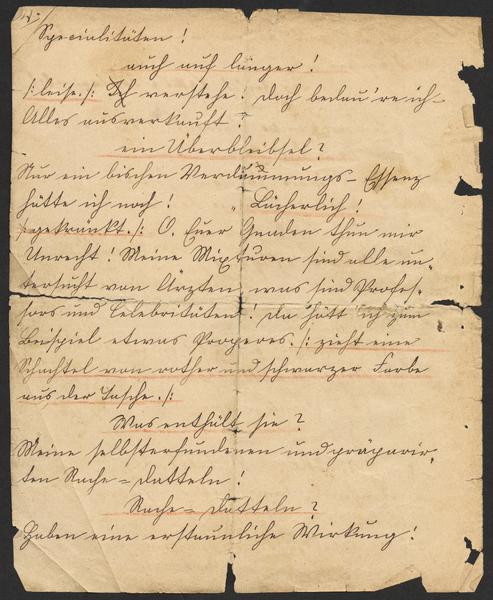 4.)
Specialitäten!
auch auf länger!
/: leise. :/ Ich verstehe. Doch bedau're ich
Alles ausverkauft!
ein Überbleibsel?
Nur ein bischen Verdünnungs-Essenz
hätte ich noch! Lächerlich!
/: gekränkt. :/ O, Euer Gnaden thun mir
Unrecht! Meine Mixturen sind alle un-
tersucht von Ärzten, was sind Profes-
sors und Celebritäten! Da hätt' ich zum
Beispiel etwas Properes. /: zieht eine
Schachtel von rother und schwarzer Farbe
aus der Tasche. :/
Was enthält sie?
Meine selbsterfundenen und präparir-
ten Rache-Datteln!
Rache-Datteln?
Haben eine erstaunliche Wirkung!